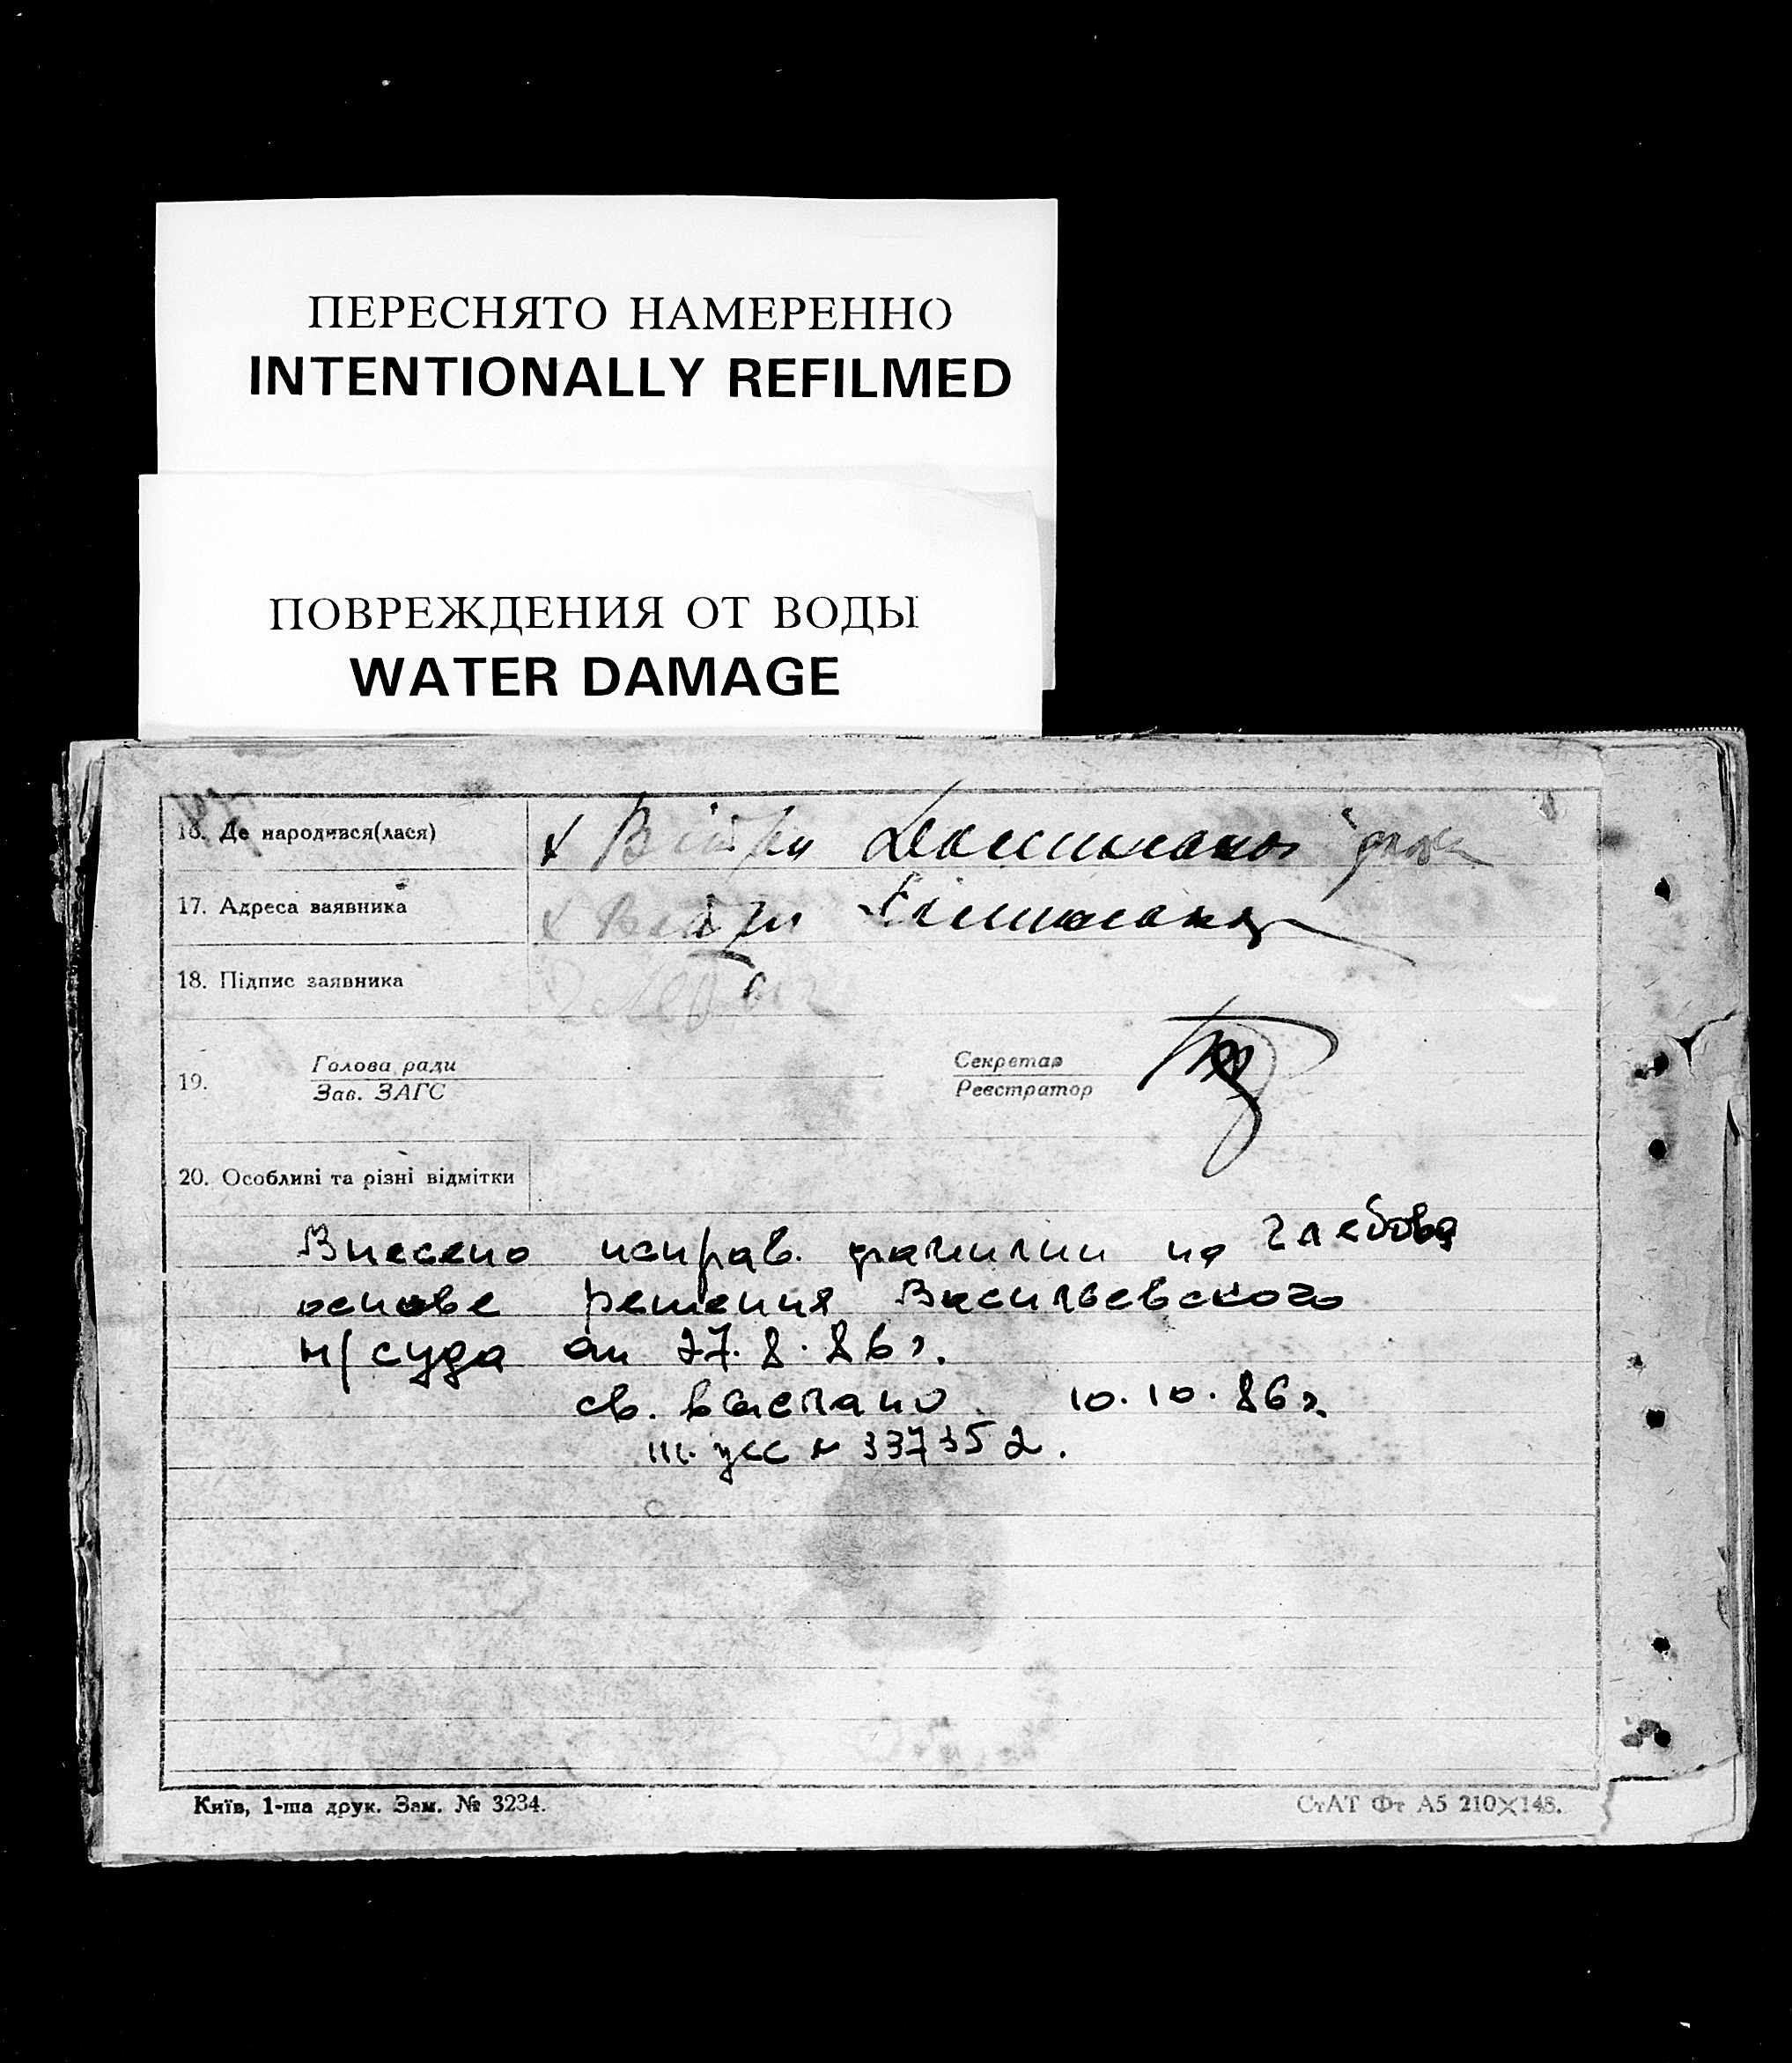 ПЕРЕСНЯТО НАМЕРЕННО
INTENTIONALLY REFILMED
ПОВРЕЖДЕНИЯ ОТ ВОДЫ
WATER DAMAGE
16. Де народився(лася)
17. Адреса заявника
18. Підпис заявника
19. Голова ради Секретар
Зав. ЗАГС Реєстратор
20. Особливі та різні відмітки
Внесено исправ. фамилии на Глебова
основе решения Васильевского
н/суда от 27.8.86г.
св. выслано 10.10.86г.
№ 337352.
Київ, 1-ша друк. Зам. № 3234. СтАТ Фт А5 210×148.